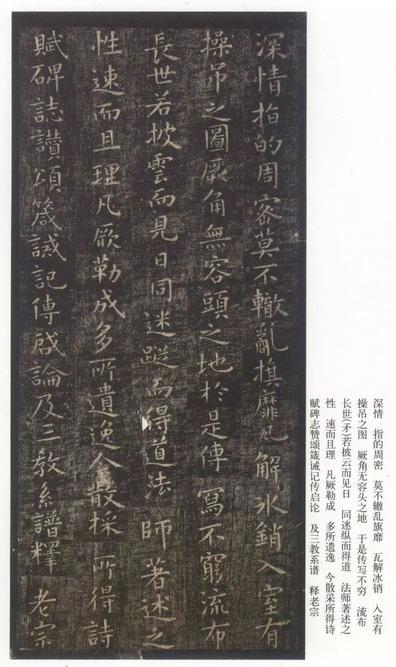 深情指的周密莫不轍亂旗靡瓦解冰銷入室有
操吊之圖厥角無容頭之地於是傳寫不窮流布
長世若披雲而見日同迷蹤而得道法師著述之
性速而且理凡厥勒成多所遺逸今散採所得詩
賦碑誌讃頌箴誡記傳啓論及三教系譜釋老宗
深情　指的周密　莫不辙乱旗靡　瓦解冰销　入室有
操吊之图　厥角无容头之地　于是传写不穷　流布
长世(矛)若披云而见日　同迷纵而得道　法师著述之
性　速而且理　凡厥勒成　多所遗逸　今散采所得诗
赋碑志赞颂箴诫记传启论　及三教系谱　释老宗